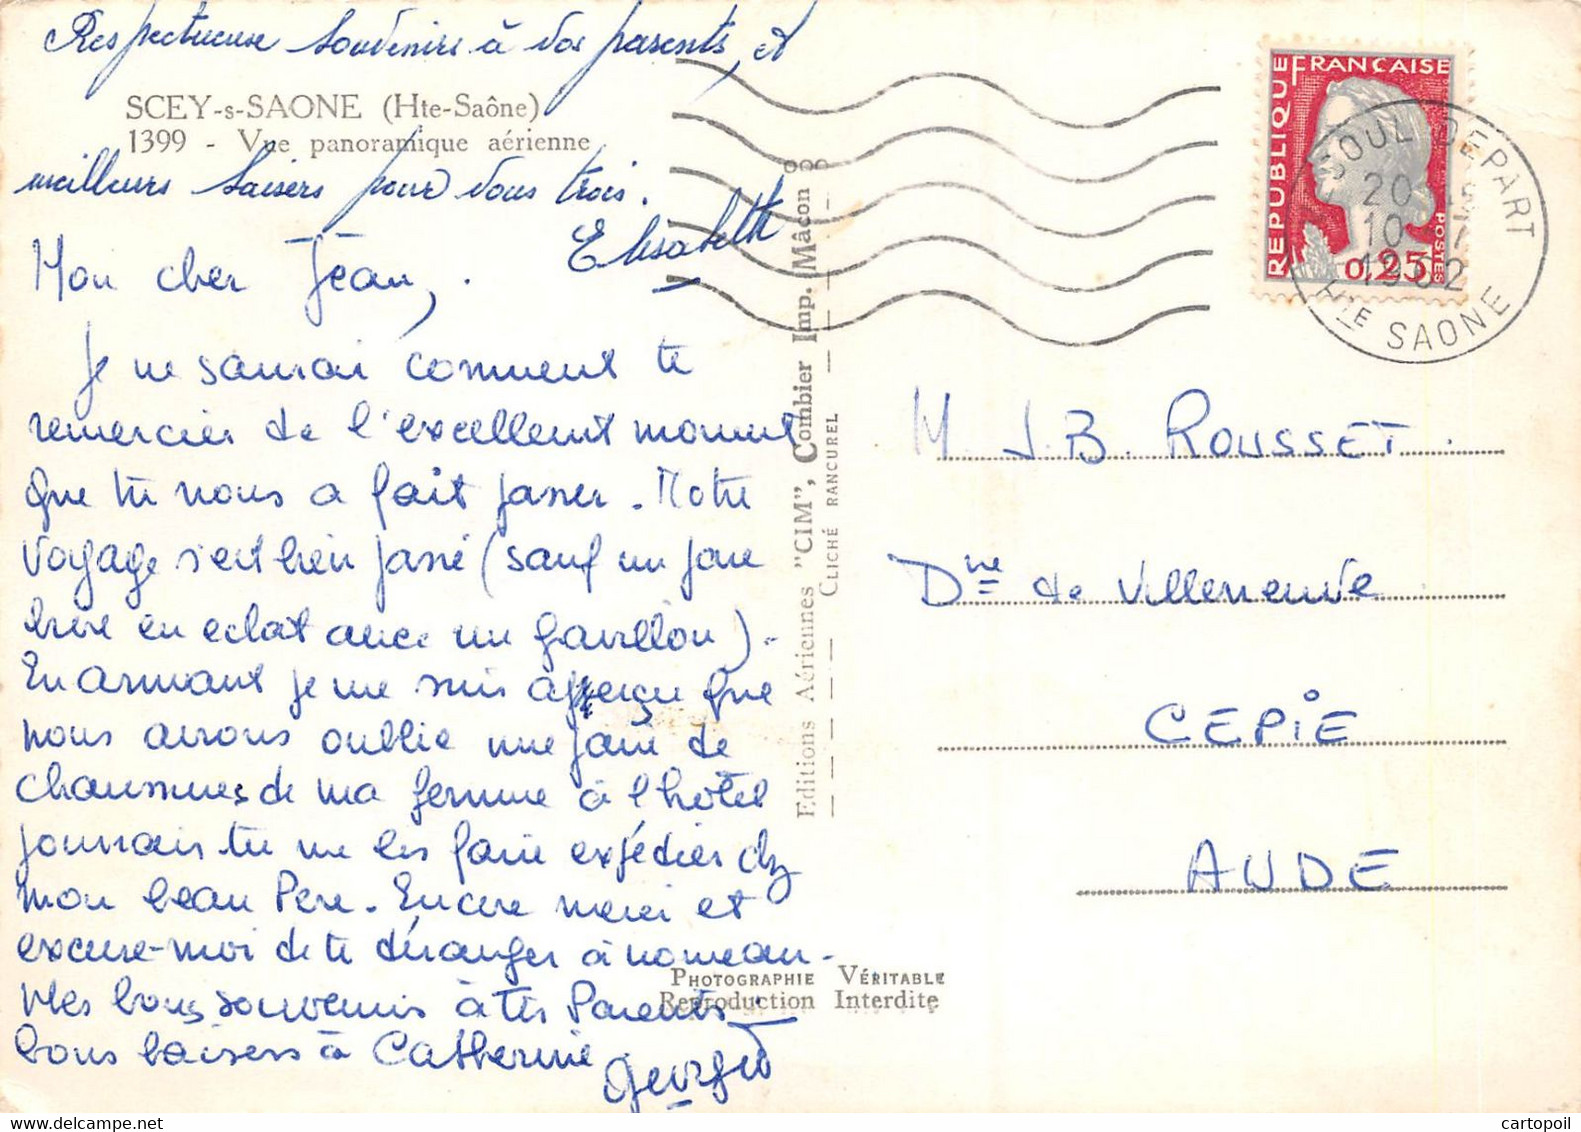 Respectueuse Souvenirs à vos parents, et
SCEY-s-SAONE (Hte-Saône)
1399 - Vue panoramique aérienne
meilleurs baisers pour vous trois.
Elisabeth
Mon cher Jean,
Je ne saurai comment te
remercier de l'excellent moment
que tu nous a fait passer. Notre
voyage s'est bien passé (sauf un pare
brise en eclat avec un gravillon).
En arrivant je me suis aperçu que
nous avions oublié une paire de
chaussures de ma femme à l'hôtel
pourrais tu me les faire expédier chez
mon beau Père. Encore merci et
excuse-moi de te déranger à nouveau.
Mes bons souvenirs à tes Parents.
bons baisers à Catherine
Georges
Editions Aériennes "CIM", Combier Imp. Mâcon
CLICHÉ RANCUREL
PHOTOGRAPHIE VÉRITABLE
Reproduction Interdite
RÉPUBLIQUE FRANÇAISE
POSTES
0,25
VESOUL DEPART
20
10
1962
Hte SAONE
M. J.B. ROUSSET.
Dne de Villeneuve
CEPIE
AUDE
cartopoil